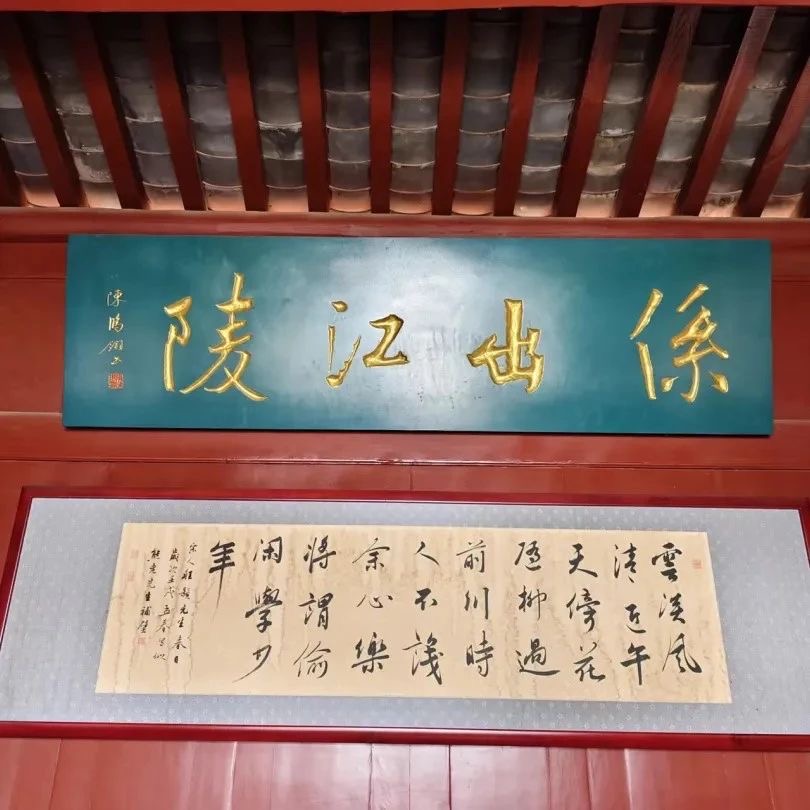 係出江陵
陳鵬
雲淡風
清近午
天傍花
隨柳過
前川時
人不識
余心樂
將謂偷
閑學少
年
宋人程顥先生春日
歲次壬戌春
先生補壁